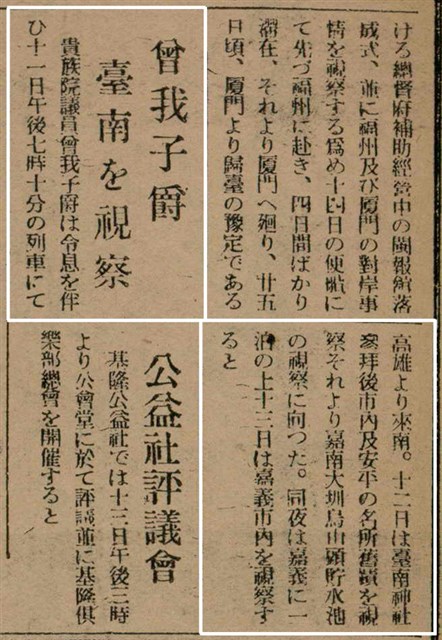 ける總督府補助經營中の閩報館落
成式、並に福州及び厦門の對岸事
情を視察する爲め十四日の便船に
て先づ福州に赴き、四日間ばかり
滯在、それより厦門へ廻り、廿五
日頃、厦門より歸臺の豫定である
曾我子爵
臺南を視察
貴族院議員曾我子爵は令息を伴
ひ十一日午後七時十分の列車にて
高雄より來南。十二日は臺南神社
參拜後市內及安平の名所舊蹟を視
察それより嘉南大圳烏山頭貯水池
の視察に向つた。同夜は嘉義に一
泊の上十三日は嘉義市內を視察す
ると
公益社評議會
基隆公益社では十三日午後三時
より公會堂に於て評議並に基隆俱
樂部總會を開催すると